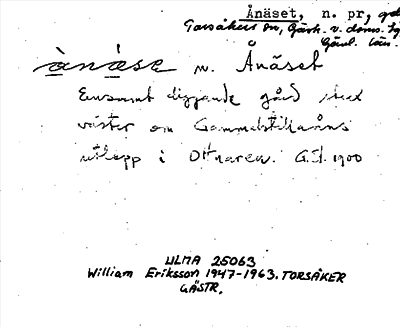 Ånäset, n. pr., gd
Torsåkers sn, Gästr. v. doms.
Gävl. län.
ànäse n. Ånäset
Ensamt liggande gård strax
väster om Gammelstillaåns
utlopp i Ottnaren. G.S. 1900
ULMA 25063
William Eriksson 1947-1963. TORSÅKER
GÄSTR.